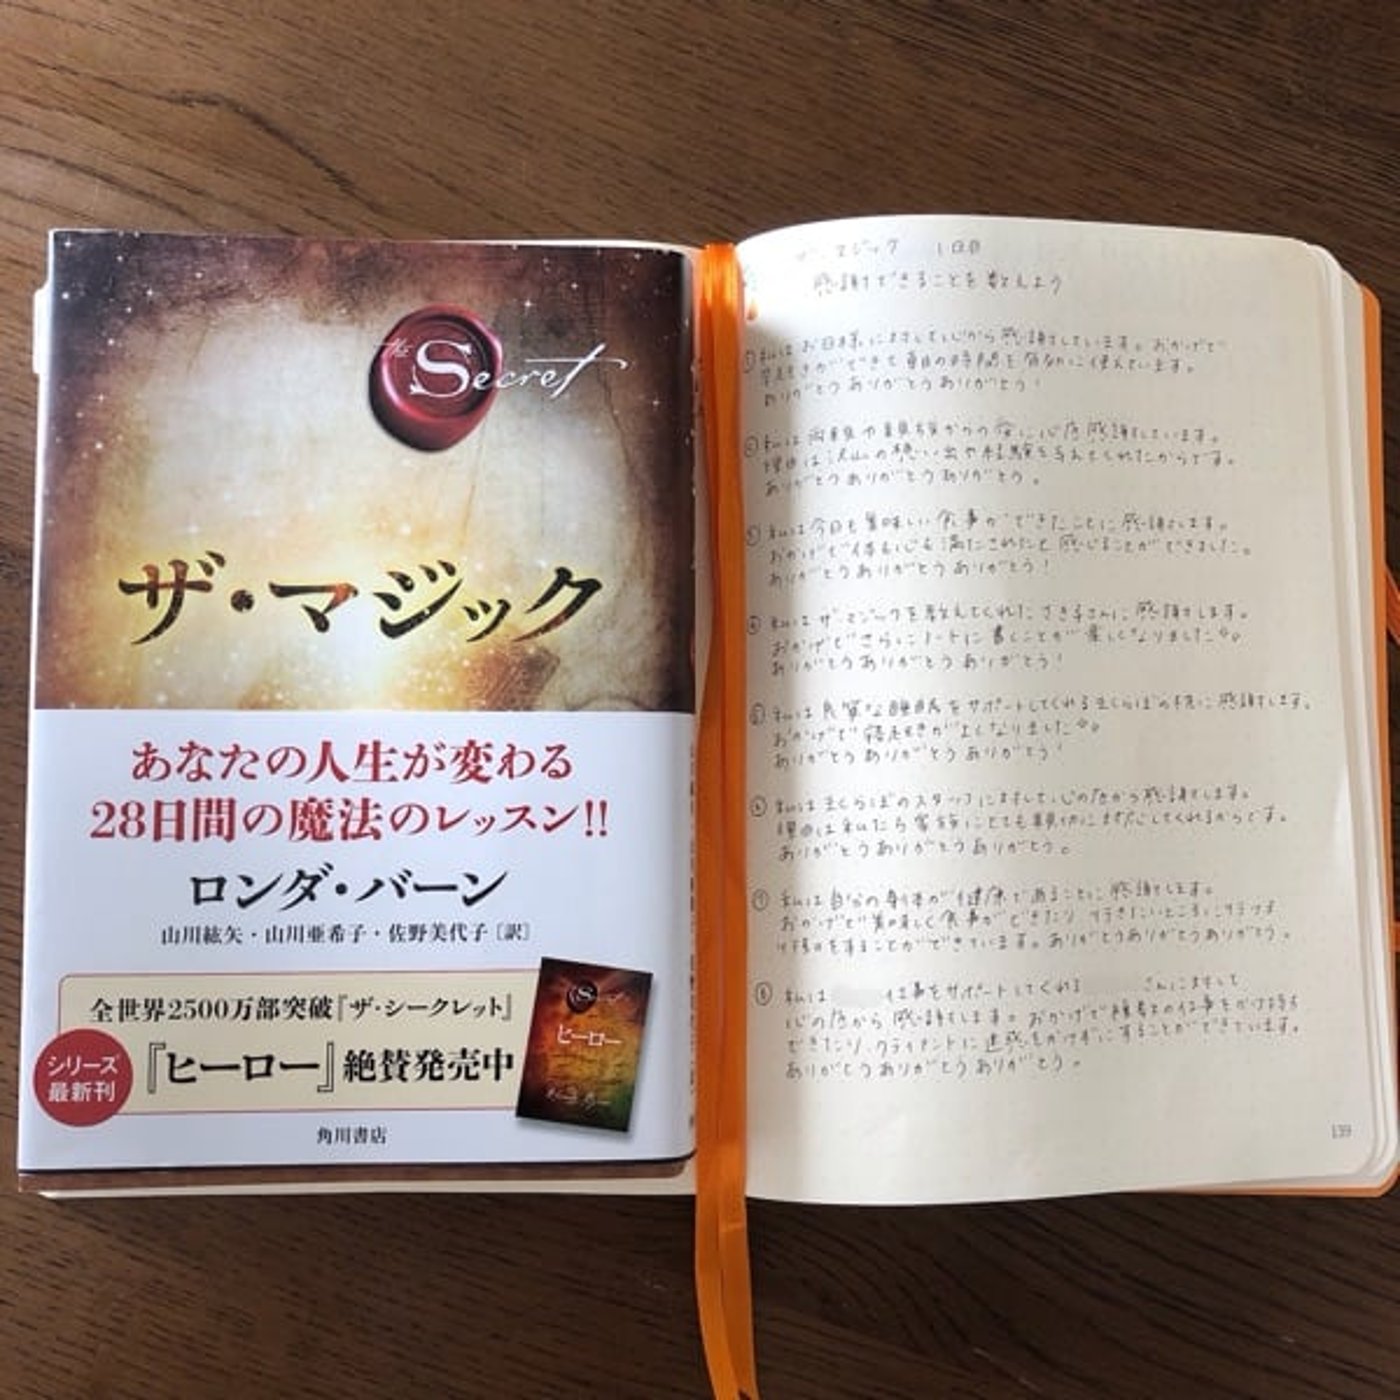 the Secret
ザ・マジック
あなたの人生が変わる
28日間の魔法のレッスン!!
ロンダ・バーン
山川紘矢・山川亜希子・佐野美代子[訳]
全世界2500万部突破『ザ・シークレット』
シリーズ
最新刊
『ヒーロー』絶賛発売中
角川書店
Secret
ヒーロー
ザ・マジック 1日目
感謝できることを数えよう
① 私はお日様に対して心から感謝しています。おかげで
早起きができて毎日の時間を有効に使えています。
ありがとうありがとうありがとう!
② 私は両親や親族からの愛に心底感謝しています。
理由は沢山の想い出や経験を与えてくれたからです。
ありがとうありがとうありがとう。
③ 私は今日も美味しい食事ができたことに感謝します。
おかげで体も心も満たされたと感じることができました。
ありがとうありがとうありがとう!
④ 私はザ・マジックを教えてくれたさき子さんに感謝します。
おかげでさらにノートに書くことが楽しくなりました
ありがとうありがとうありがとう!
⑤ 私は良質な睡眠をサポートしてくれるまくらぼの枕に感謝します。
おかげで寝起きがよくなりました
ありがとうありがとうありがとう!
⑥ 私はまくらぼのスタッフに対して心の底から感謝します。
理由は私たち家族にとても親切に対応してくれるからです。
ありがとうありがとうありがとう。
⑦ 私は自分の身体が健康であることに感謝します。
おかげで美味しく食事ができたり、行きたいところに行けず
をすることができています。ありがとうありがとうありがとう。
⑧ 私は 仕事をサポートしてくれる さんに対して
心の底から感謝します。おかげで複数の仕事をかけ持ち
できたり、クライアントに迷惑をかけずにすることができています。
ありがとうありがとうありがとう。
139